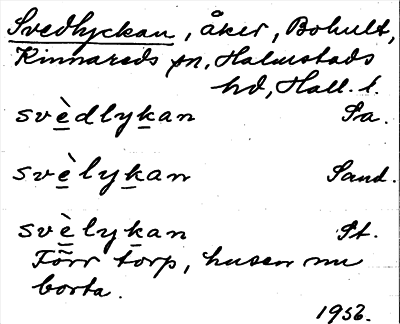 Svedlyckan, åker, Bohult,
Kinnareds sn, Halmstads
hd, Hall. l.
svè̲dlyk̲an Sa.
svè̲lyk̲an Sand.
svè̲lyk̲an St.
Förr torp, husen nu
borta.
1956.